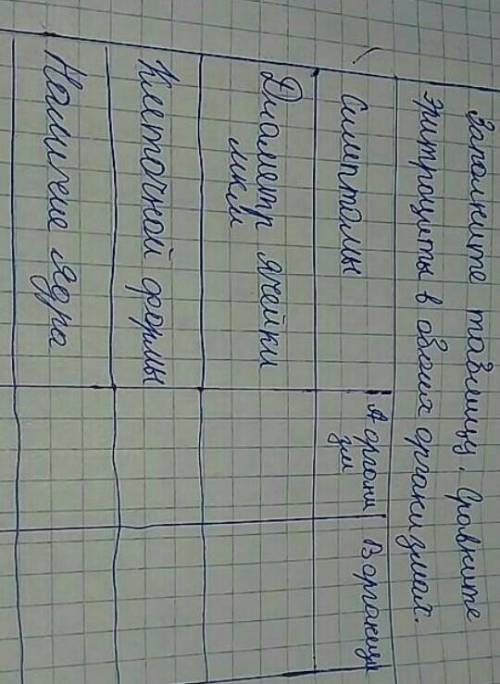 Заполните таблицу. Сравните
эритроциты в обоих организмах.
Симптомы
А органи
зм
В организм
Диаметр ячейки
мкм
Клеточной формы
Наличие ядра